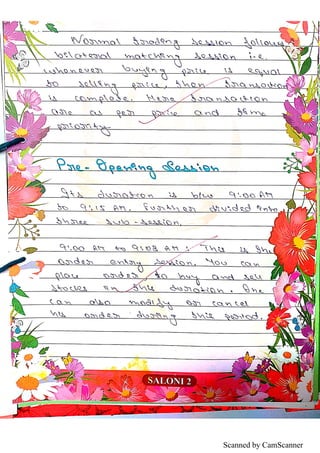 Normal trading session follows
bilateral matching session i.e.
whenever buying price is equal
to selling price, then transaction
is complete. Here transaction
are as per price and time
priority.
Pre-Opening Session
Its duration is b/w 9:00 AM
to 9:15 AM. Further divided into
three sub-session.
9:00 AM to 9:08 AM : This is the
order entry session. You can
place order to buy and sell
stocks in this duration. One
can also modify or cancel
his order during this period.
SALONI 2
Scanned by CamScanner